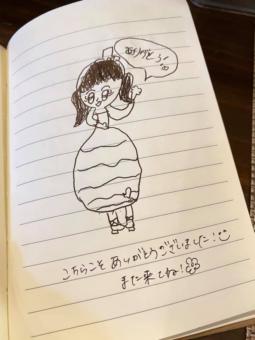 ありがとう
こちらこそ ありがとうございました！
また来てね！